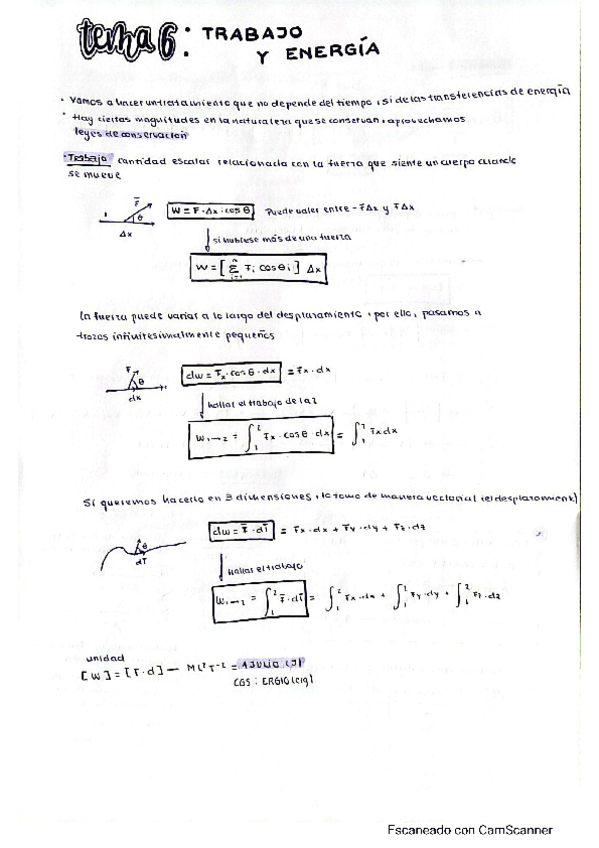 tema 6: TRABAJO
Y ENERGÍA
· Vamos a hacer un tratamiento que no depende del tiempo, si de las transferencias de energía
· Hay ciertas magnitudes en la naturaleza que se conservan, aprovechamos
leyes de conservación
· Trabajo cantidad escalar relacionada con la fuerza que siente un cuerpo cuando
se mueve
F θ Δx
W = F · Δx · cos θ Puede valer entre - FΔx y FΔx
si hubiese más de una fuerza
W = [ Σ i=1 n Fi cos θi ] Δx
La fuerza puede variar a lo largo del desplazamiento, por ello, pasamos a
trozos infinitesimalmente pequeños
F θ dx
dw = Fx · cos θ · dx = Fx · dx
hallar el trabajo de 1 a 2
W1→2 = ∫₁² Fx · cos θ · dx = ∫₁² Fx dx
Si queremos hacerlo en 3 dimensiones, lo tomo de manera vectorial (el desplazamient)
θ dr
dw = F · dr = Fx · dx + Fy · dy + Fz · dz
Hallar el trabajo
W1→2 = ∫₁² F · dr = ∫₁² Fx · dx + ∫₁² Fy · dy + ∫₁² Fz · dz
unidad
[W] = [F · d] — ML²T⁻² = 1 JULIO (J)
CGS: ERGIO (erg)
Escaneado con CamScanner